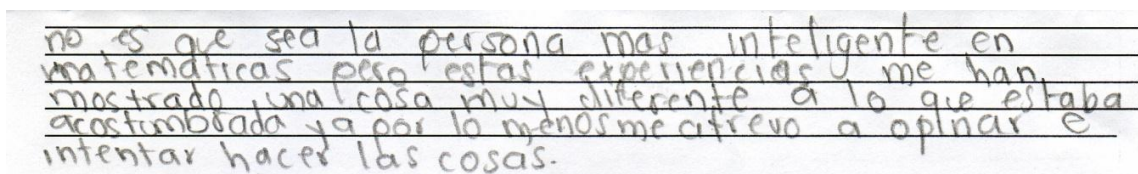 no es que sea la persona mas inteligente en
matemáticas pero estas experiencias me han
mostrado una cosa muy diferente a lo que estaba
acostumbrada ya por lo menos me atrevo a opinar e
intentar hacer las cosas.